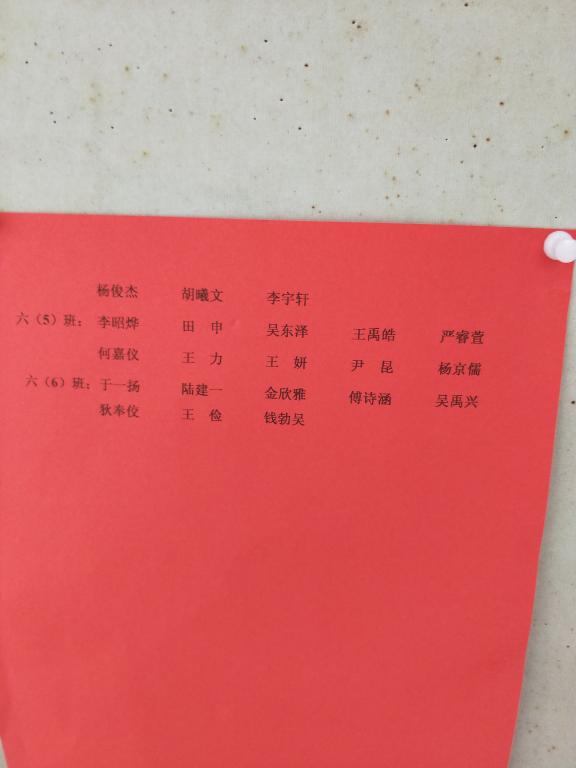 杨俊杰 胡曦文 李宇轩
六（5）班：李昭烨 田 申 吴东泽 王禹皓 严睿萱
何嘉仪 王 力 王 妍 尹 昆 杨京儒
六（6）班：于一扬 陆建一 金欣雅 傅诗涵 吴禹兴
狄奉佼 王 俭 钱勃吴